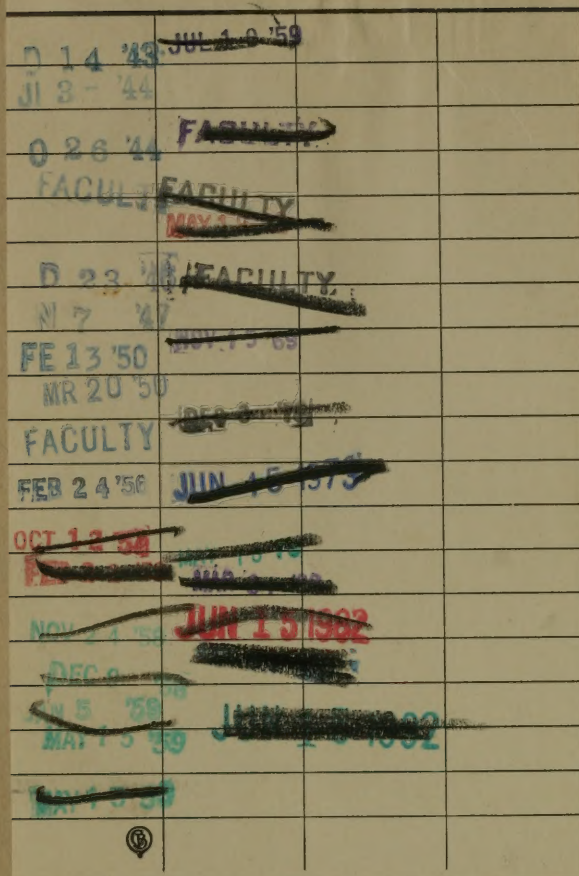 D 14 '43
JI 3 - '44
O 26 '44
FACULTY
D 23
N 7 '47
FE 13 '50
MR 20 '50
FACULTY
FEB 24 '56
OCT 12
NOV 24 '58
DEC
JAN 5 '59
MAY 15 '59
MAY 15 59
JUL 10 '59
FACULTY
FACULTY
MAY
FACULTY
NOV 15 '69
DEC
JUN 15 1973
JUN 15 1982